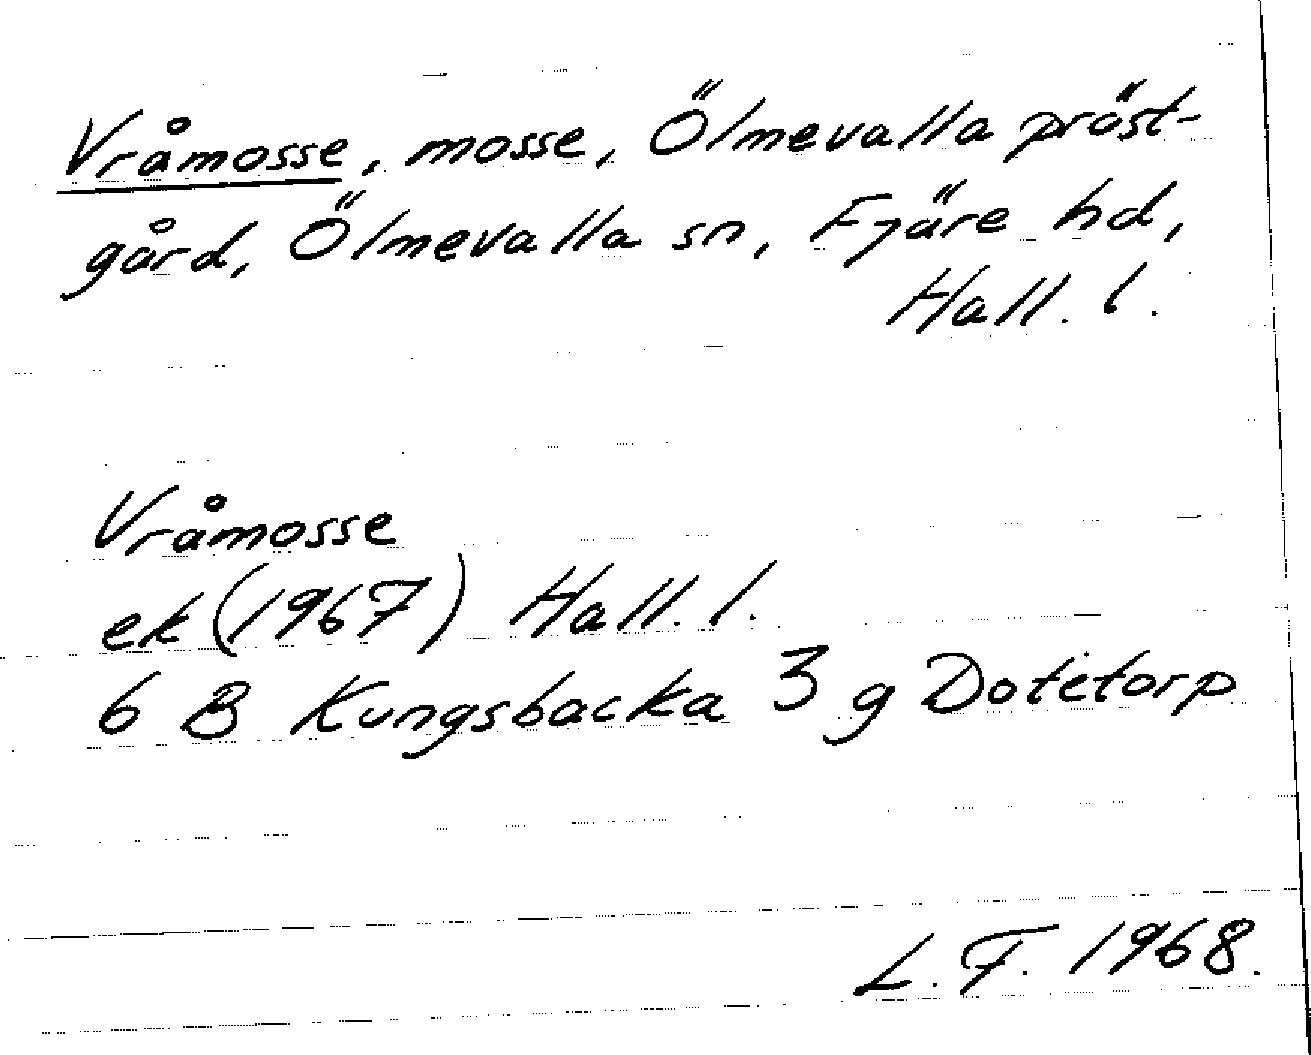 Vråmosse, mosse, Ölmevalla präst-
gård, Ölmevalla sn, Fjäre hd,
Hall. l.
Vråmosse
ek (1967) Hall. l.
6 B Kungsbacka 3 g Dotetorp
L. F. 1968.